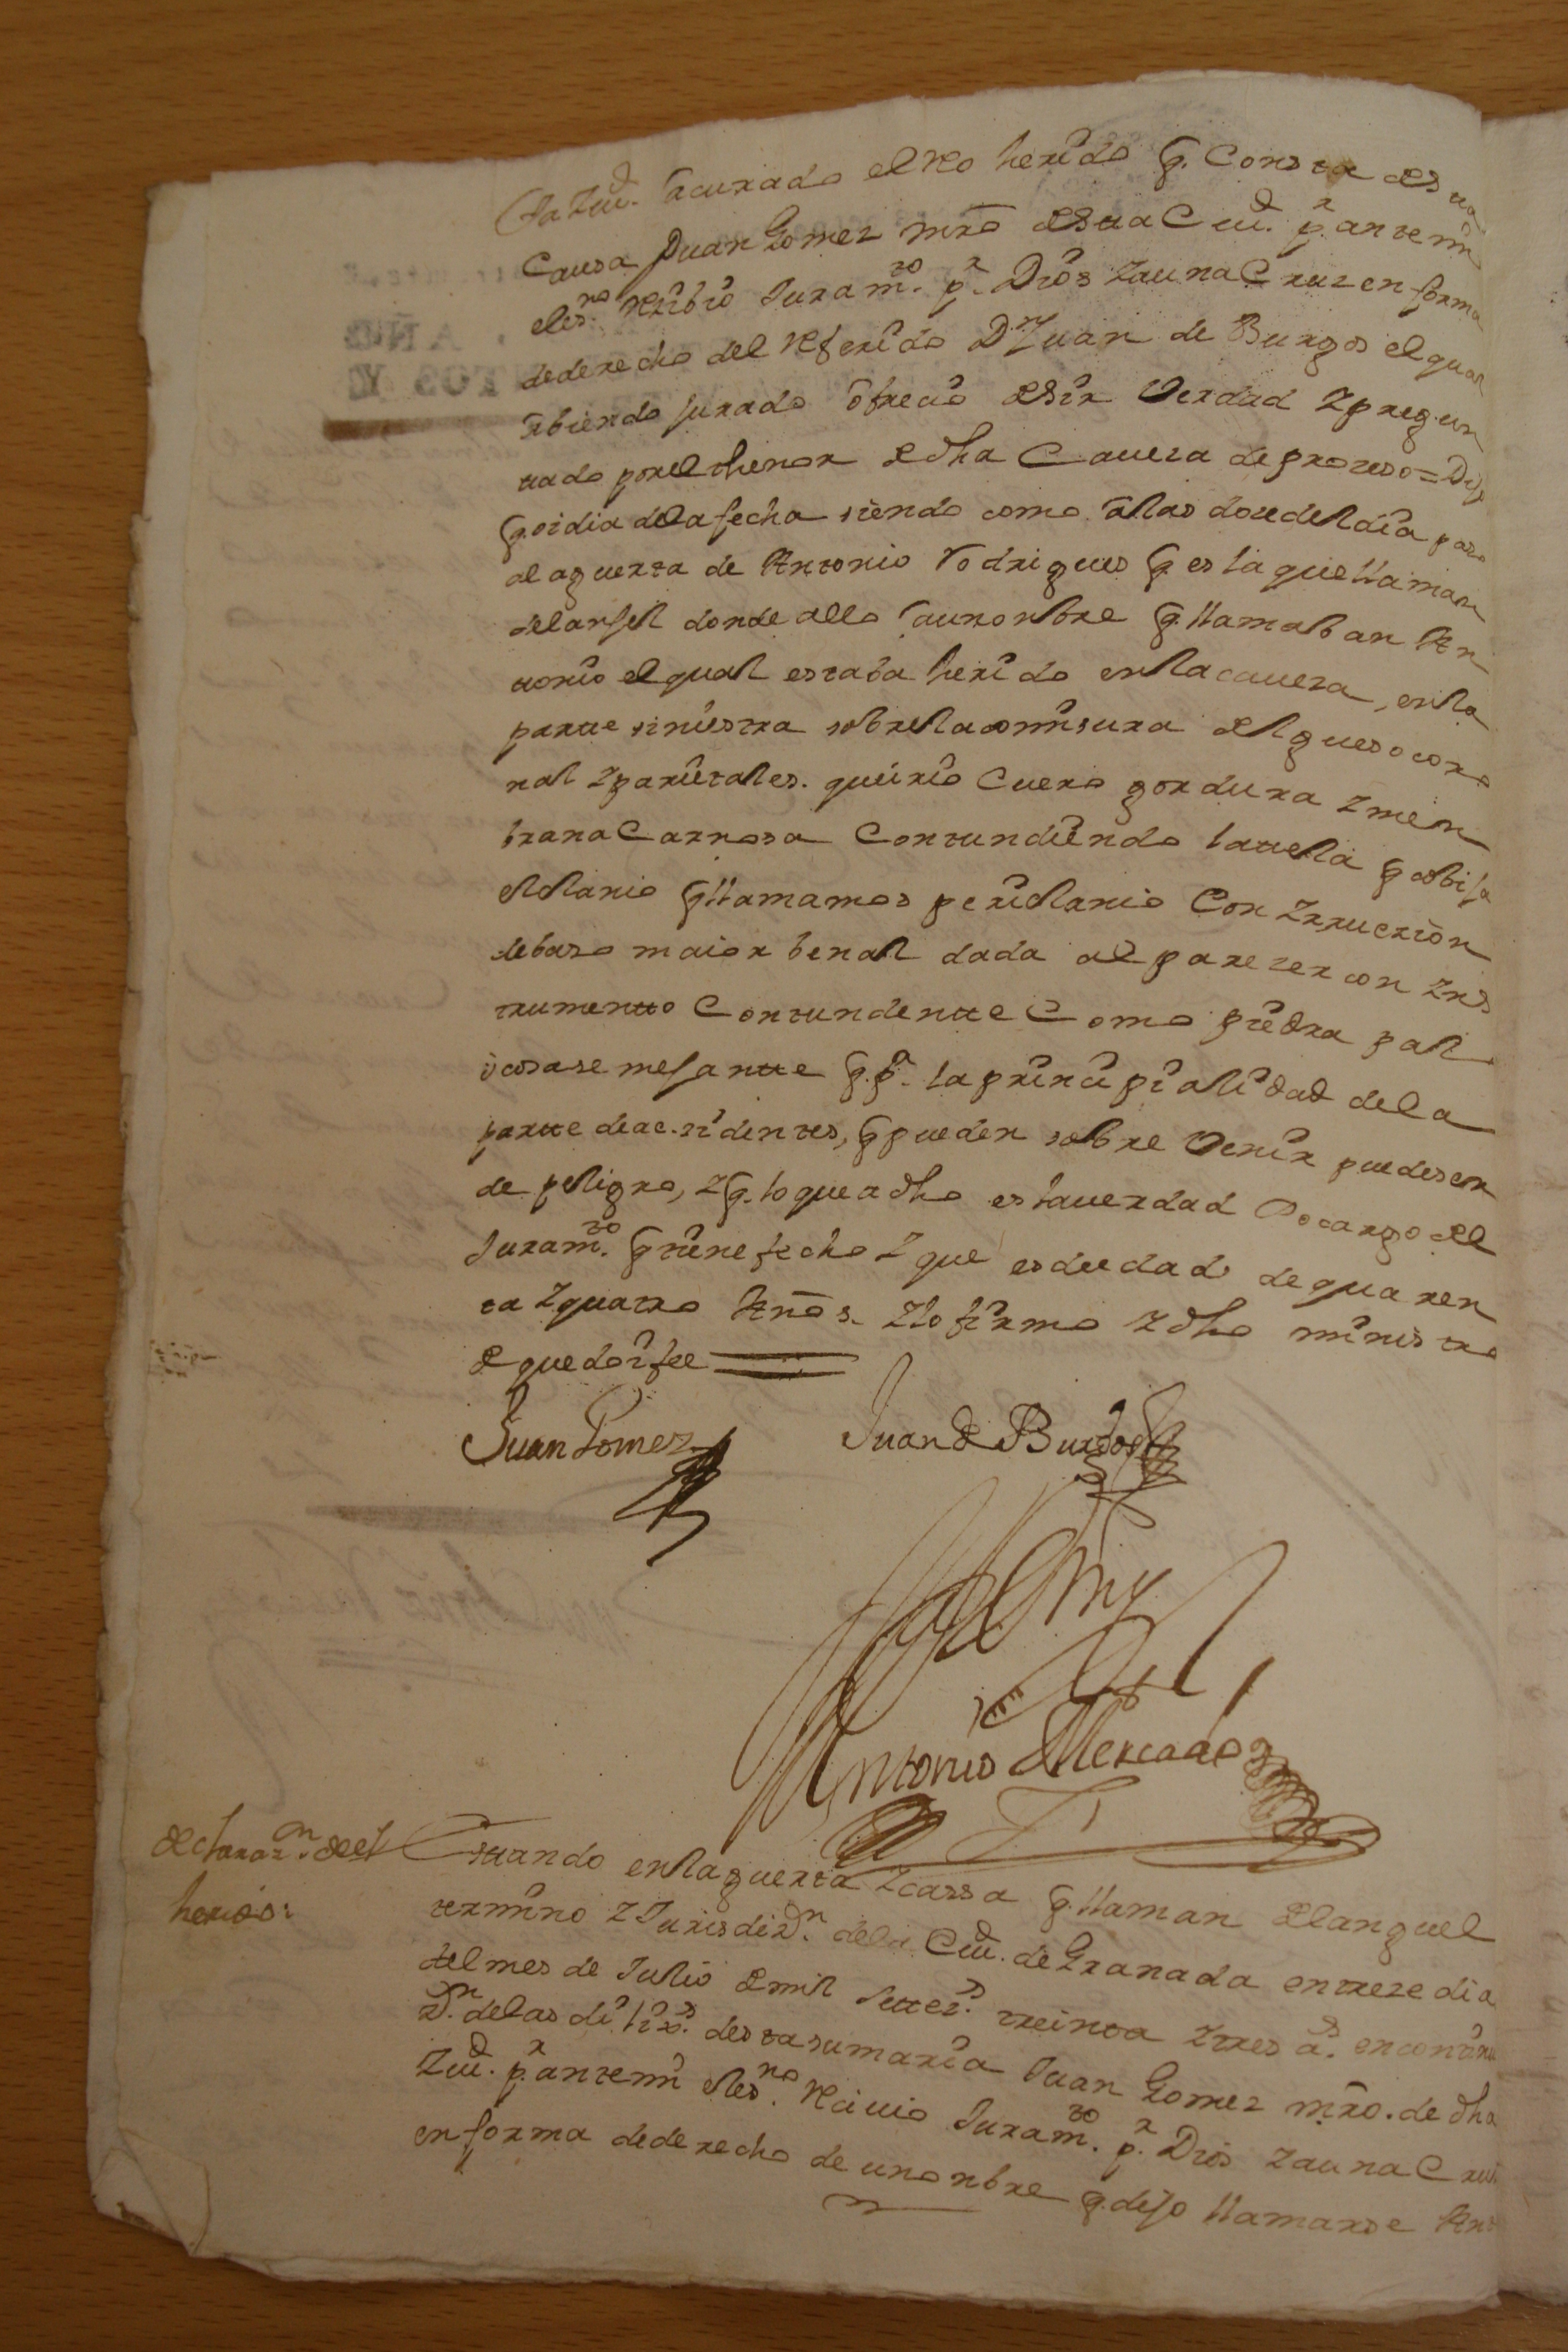 sta Ziud. a curado el Reo herido q. Consta desta
Causa Juan Gomez mro desta Ciud. pr. ante mi
el esno. Rezibio Juramto. pr. Dios Z a una Cruz en forma
de derecho del Referido Dn Juan de Burgos el qual
abiendo jurado ofrecio desir Verdad Z pregun
tado por el thenor de dha Caveza de prozeso = Dijo
q. oi dia de la fecha siendo como a las doze del dia paso
a la guerta de Antonio Rodrigues q. es la que llaman
del anjel donde allo a un onbre q. llamaban An
tonio el qual estaba herido en la caveza, en la
partte siniestra sobre la comisura del gueso coro
nal Z parietales. que irio Cuero gordura Z men
brana Carnosa Contundiendo la ttela q cobija
el Clanio q llamamos periclanio Con Zrrucrion
de baso maior benal dada al parezer con Zns
trumentto Contundentte Como piedra pali
o cosa semejantte q. pr. la principialidad de la
partte de acsidentes, q pueden sobre Venir puede ser
de peligro, Z q. lo que a dho es la verdad so cargo del
Juramto. q tiene fecho Z que es de edad de quaren
ta Z quatro Años. Z lo firmo Z dho ministro
de que doi fee
Juan Gomez Juan de Burgos
Antte mi
Antonio Mercado
declarazn. de el
herido:
Esttando en la guerta Z cassa q. llaman del anguel
termino Z Jurisdizn. de la Ciud. de Granada en treze dia
del mes de Julio de mil settezs. treinta Z tres as. en continu
zn. de las dilixs. desta sumaria Juan Gomez mro. de dha
Ziud. pr. ante mi el esno. Recivio Juramto. pr. Dios Z a una Cruz
en forma de derecho de un onbre q. dijo llamarse Ant